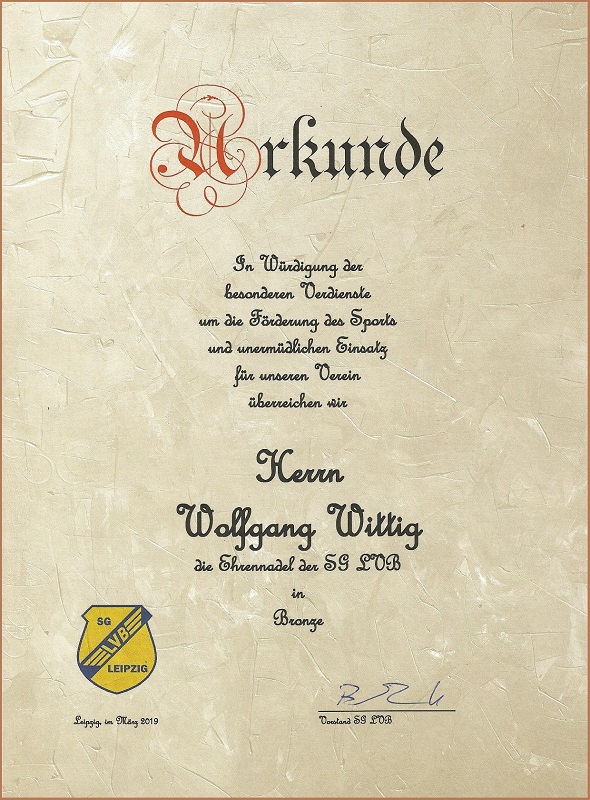 Urkunde
In Würdigung der
besonderen Verdienste
um die Förderung des Sports
und unermüdlichen Einsatz
für unseren Verein
überreichen wir
Herrn
Wolfgang Wittig
die Ehrennadel der SG LVB
in
Bronze
SG
LVB
LEIPZIG
Leipzig, im März 2019
Vorstand SG LVB